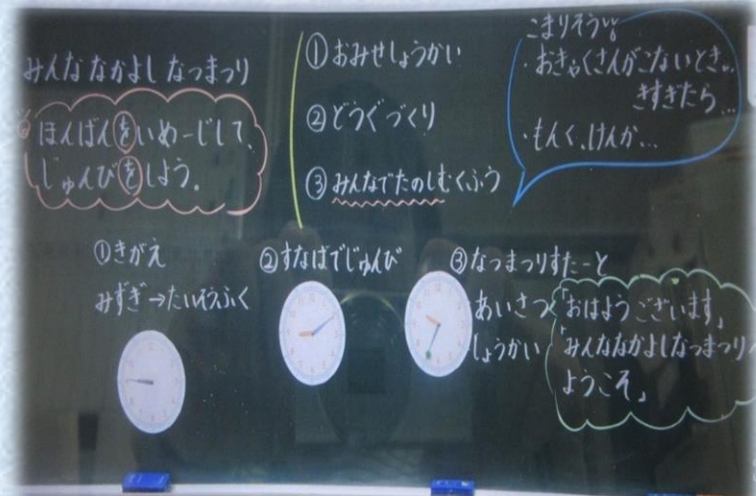 みんななかよしなつまつり
ほんばんをいめーじして、
じゅんびをしよう。
①おみせしょうかい
②どうぐづくり
③みんなでたのしむくふう
こまりそう…
・おきゃくさんがこないとき…
きすぎたら…
・もんく、けんか…
①きがえ
みずぎ→たいそうふく
②すなばでじゅんび
③なつまつりすたーと
あいさつ「おはようございます」
しょうかい「みんななかよしなつまつりへ
ようこそ」